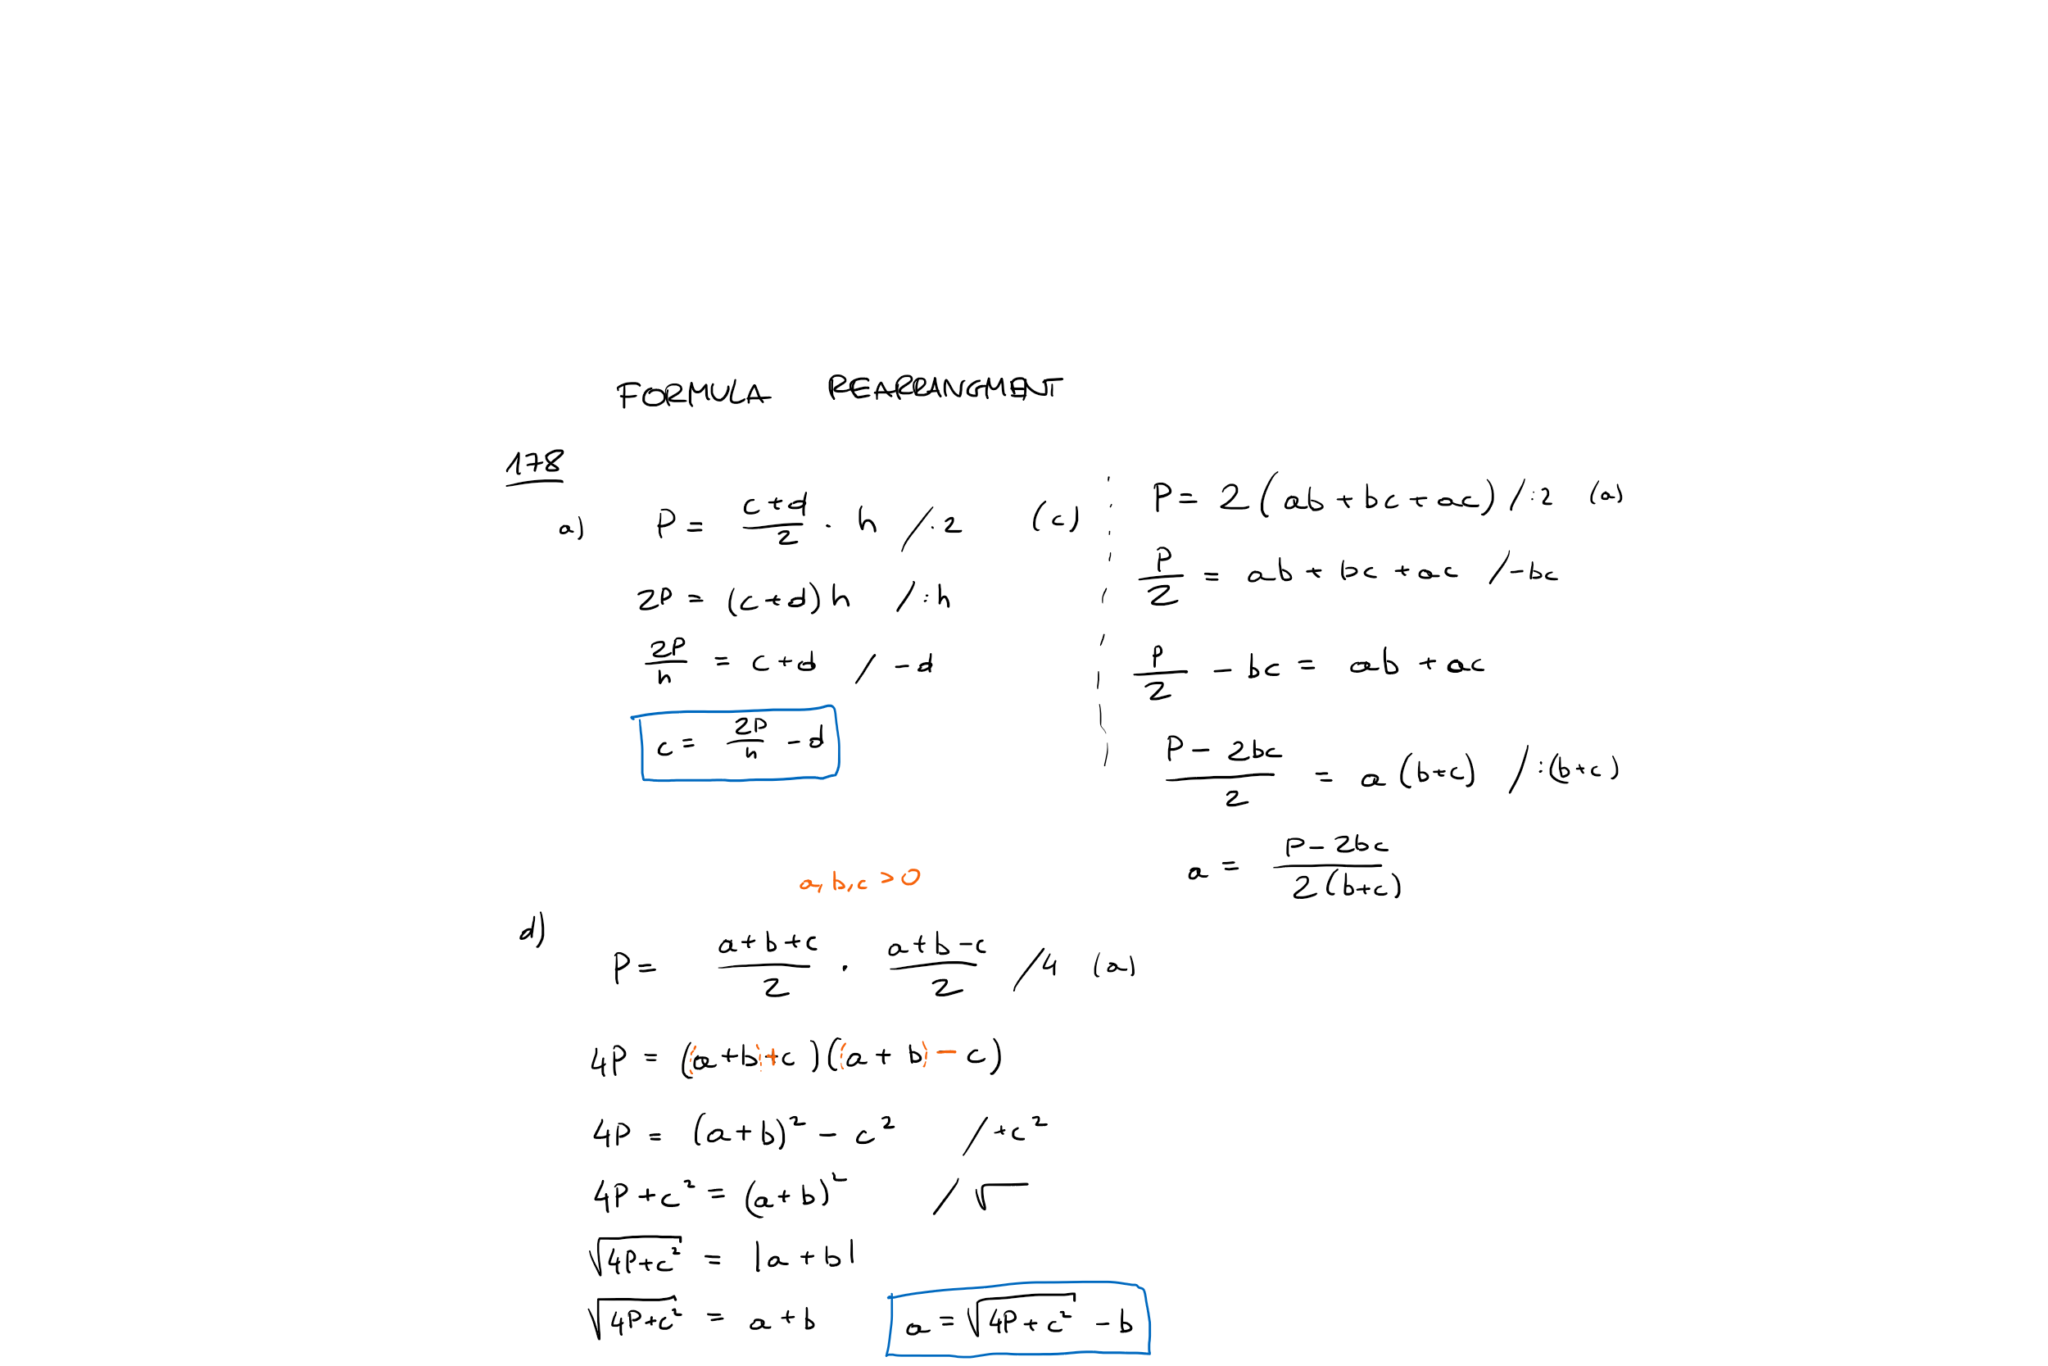 FORMULA REARRANGMENT
178
a) P = \frac{c+d}{2} · h /·2 (c)
2P = (c+d)h /:h
\frac{2P}{h} = c+d / -d
c = \frac{2P}{h} - d
P = 2(ab + bc + ac) /:2 (a)
\frac{P}{2} = ab + bc + ac /-bc
\frac{P}{2} - bc = ab + ac
\frac{P - 2bc}{2} = a(b+c) /:(b+c)
a = \frac{P - 2bc}{2(b+c)}
a, b, c > 0
d) P = \frac{a+b+c}{2} · \frac{a+b-c}{2} /4 (a)
4P = ((a+b)+c)((a+b)-c)
4P = (a+b)² - c² /+c²
4P + c² = (a+b)² /√
√(4P+c²) = |a+b|
√(4P+c²) = a+b
a = √(4P+c²) - b